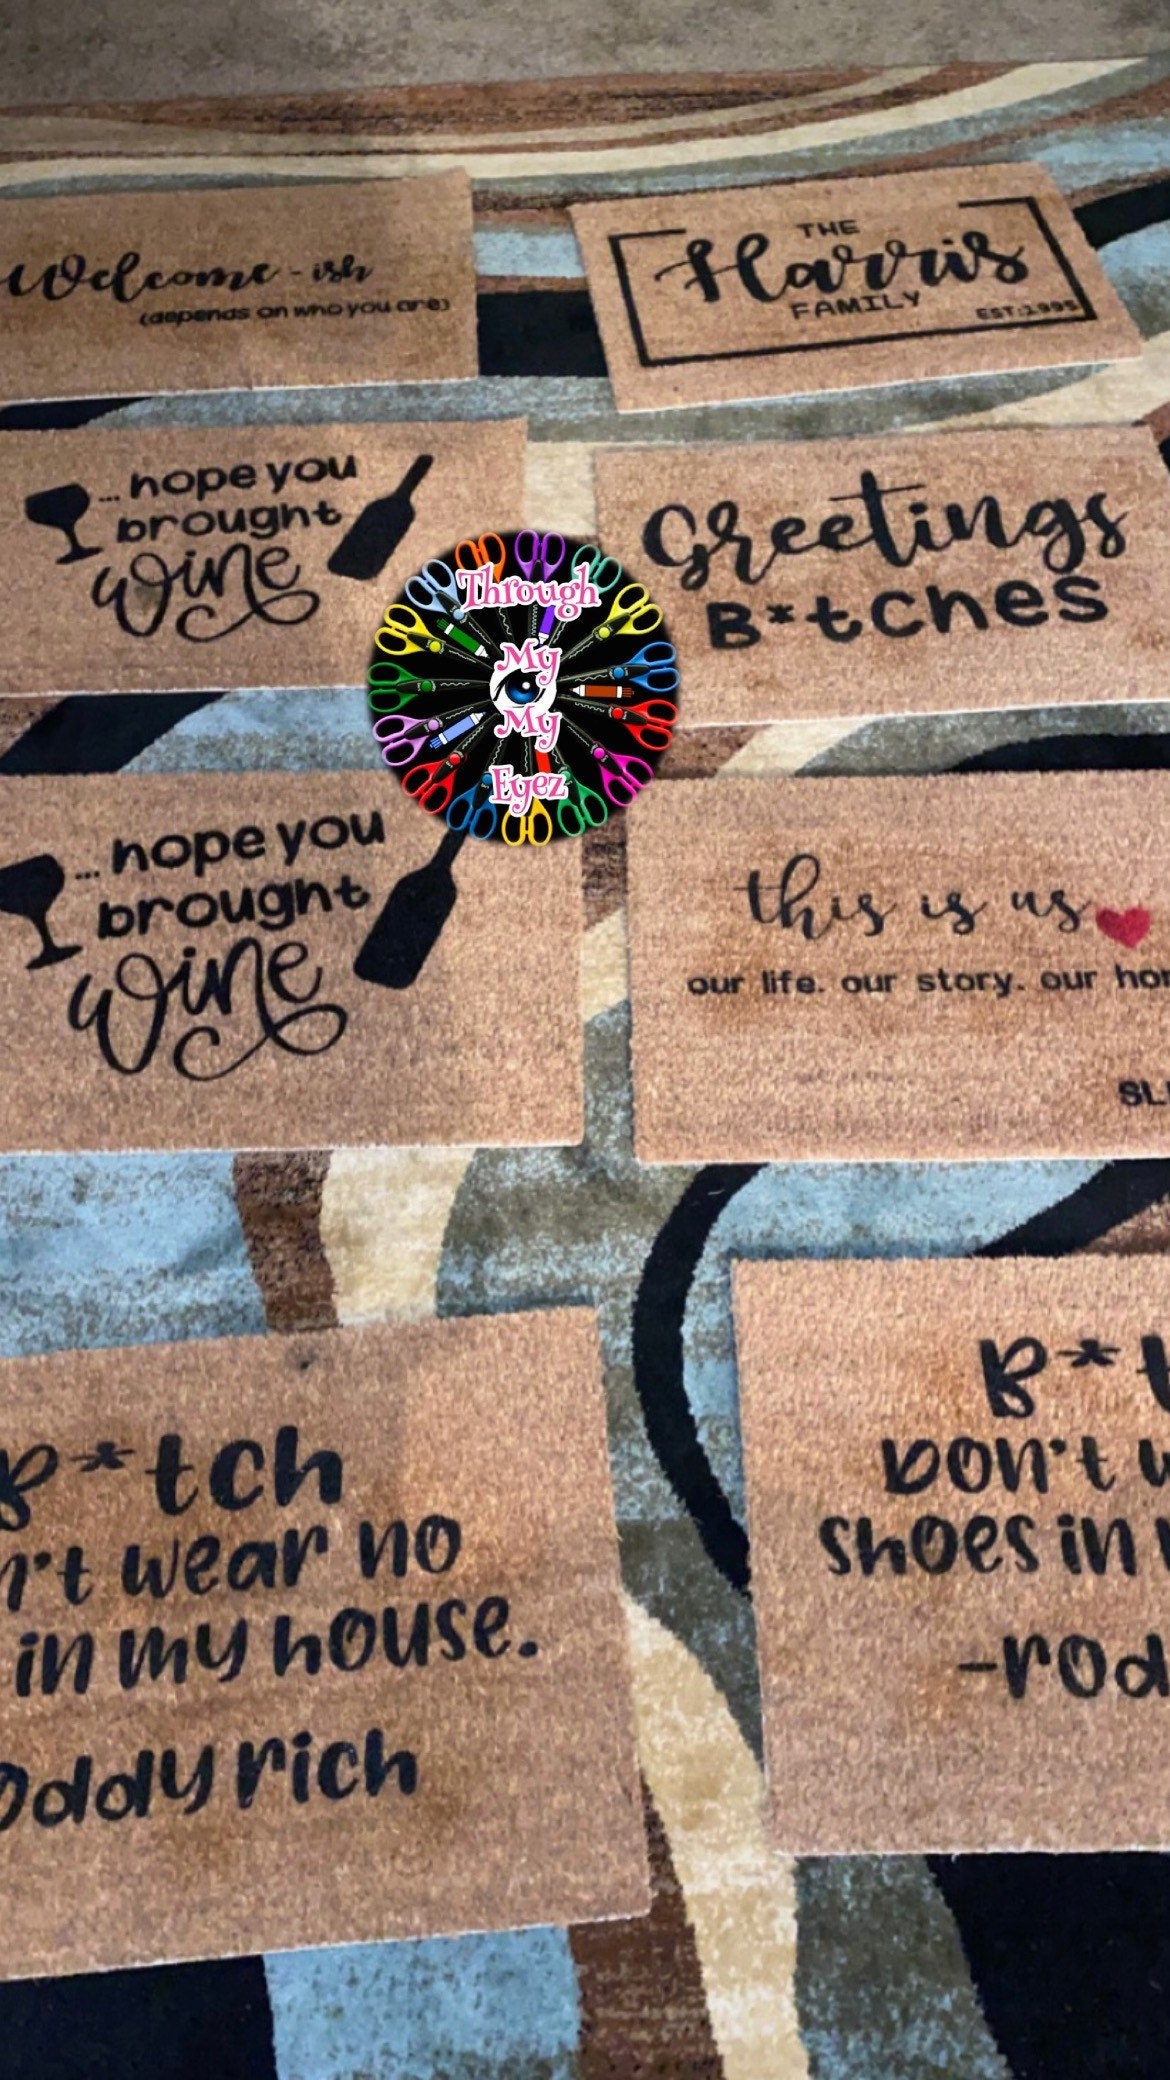 Welcome-ish
(depends on who you are)
THE
Harris
FAMILY
EST:1995
...hope you
brought
wine
Greetings
B*tches
Through
My
My
Eyez
...hope you
brought
wine
this is us
our life. our story. our
B*tch
wear no
in my house.
rich
Don't
shoes in